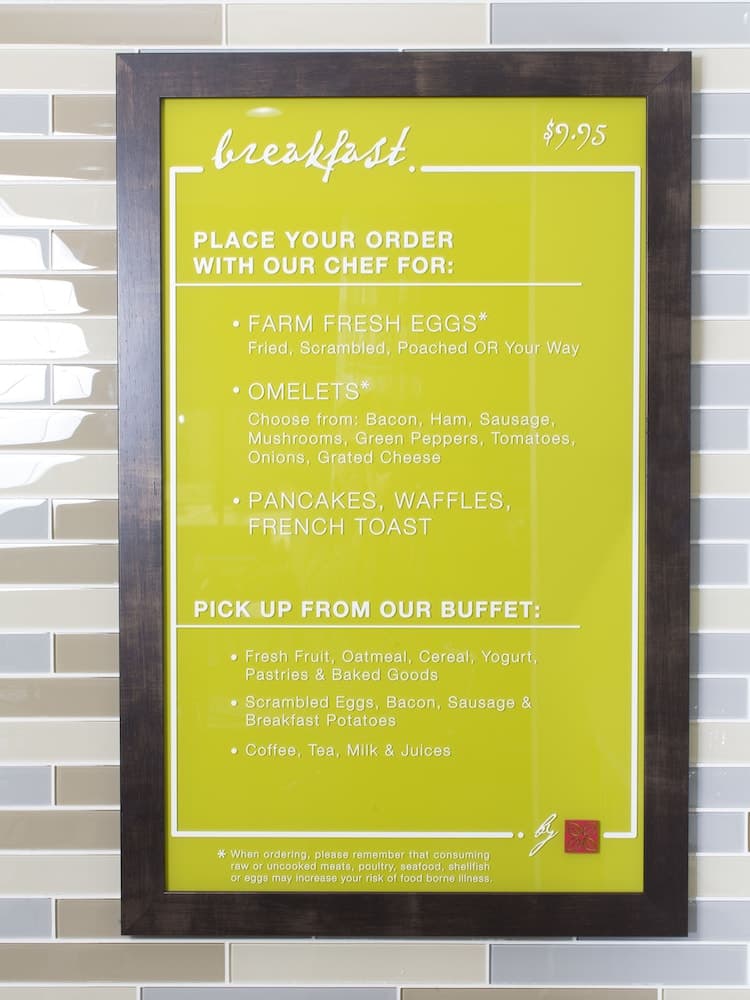 breakfast.
$9.95
PLACE YOUR ORDER
WITH OUR CHEF FOR:
• FARM FRESH EGGS*
Fried, Scrambled, Poached OR Your Way
• OMELETS*
Choose from: Bacon, Ham, Sausage,
Mushrooms, Green Peppers, Tomatoes,
Onions, Grated Cheese
• PANCAKES, WAFFLES,
FRENCH TOAST
PICK UP FROM OUR BUFFET:
• Fresh Fruit, Oatmeal, Cereal, Yogurt,
Pastries & Baked Goods
• Scrambled Eggs, Bacon, Sausage &
Breakfast Potatoes
• Coffee, Tea, Milk & Juices
. by
* When ordering, please remember that consuming
raw or uncooked meats, poultry, seafood, shellfish
or eggs may increase your risk of food borne illness.